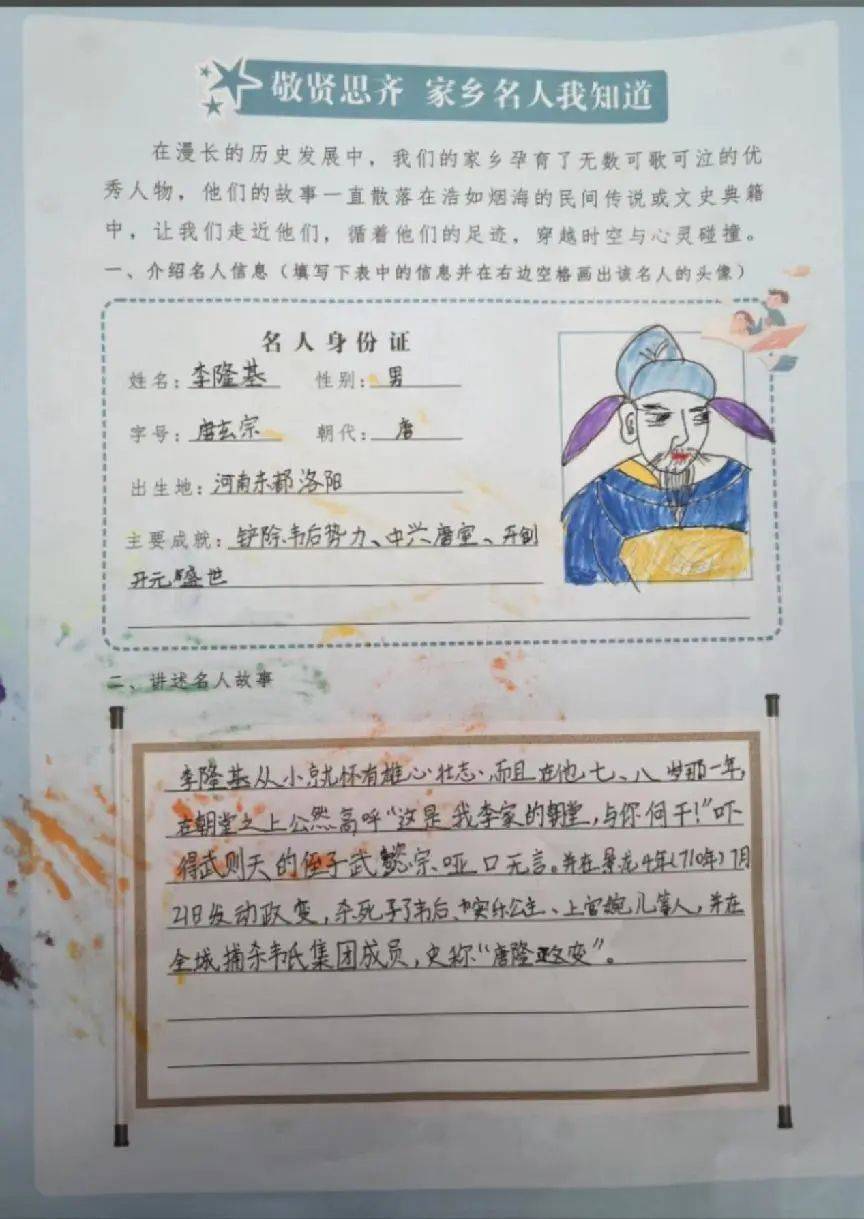 敬贤思齐 家乡名人我知道
在漫长的历史发展中，我们的家乡孕育了无数可歌可泣的优
秀人物，他们的故事一直散落在浩如烟海的民间传说或文史典籍
中，让我们走近他们，循着他们的足迹，穿越时空与心灵碰撞。
一、介绍名人信息（填写下表中的信息并在右边空格画出该名人的头像）
名人身份证
姓名：李隆基 性别：男
字号：唐玄宗 朝代：唐
出生地：河南东都洛阳
主要成就：铲除韦后势力、中兴唐室、开创
开元盛世
二、讲述名人故事
李隆基从小就怀有雄心壮志、而且在他七、八岁那一年，
在朝堂之上公然高呼“这是我李家的朝堂，与你何干！”吓
得武则天的侄子武懿宗哑口无言。并在景龙4年（710年）7月
21日发动政变，杀死了韦后、安乐公主、上官婉儿等人，并在
全城捕杀韦氏集团成员，史称“唐隆政变”。